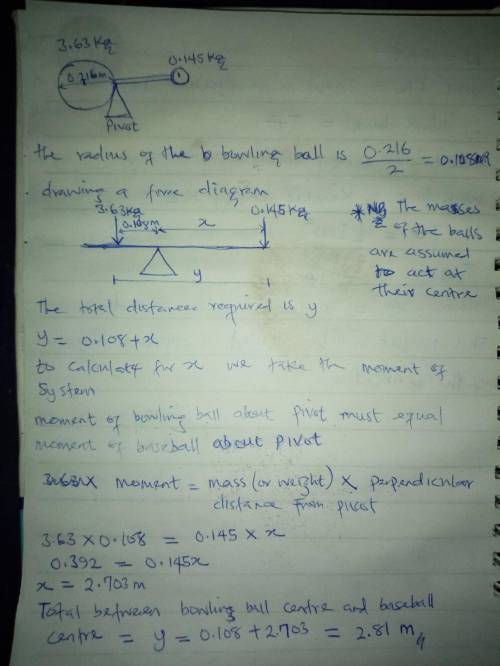 3.63Kg
0.216m
0.145Kg
Pivot
the radius of the b bowling ball is 0.216/2 = 0.108m
drawing a force diagram
3.63Kg
0.108m
x
0.145Kg
y
*NB The masses
of the balls
are assumed
to act at
their centre
The total distance required is y
y = 0.108+x
to calculate for x we take the moment of
system
moment of bowling ball about pivot must equal
moment of baseball about pivot
3.63X moment = mass (or weight) X perpendicular
distance from pivot
3.63 X 0.108 = 0.145 X x
0.392 = 0.145x
x = 2.703 m
Total between bowling ball centre and baseball
centre = y = 0.108 + 2.703 = 2.81 m